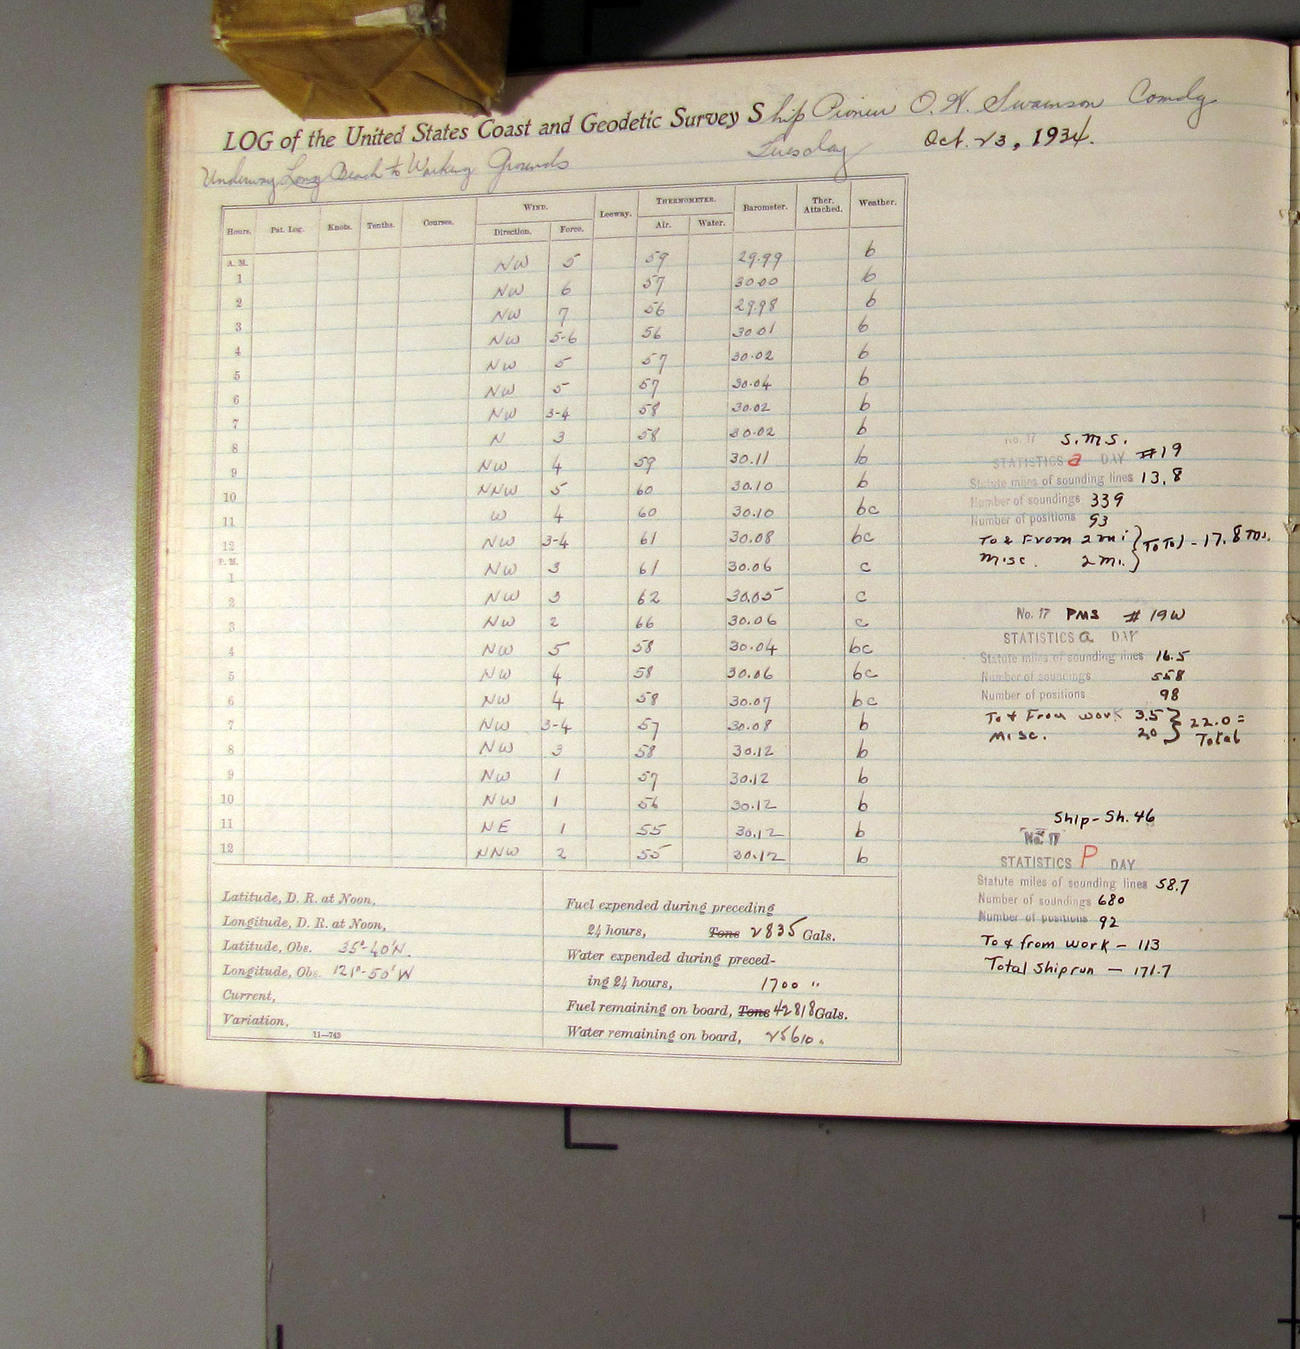 LOG of the United States Coast and Geodetic Survey Ship Pioneer O. W. Swainson Comdg
Underway Long Beach to Working Grounds Tuesday Oct. 23, 1934.
Hours. Pat. Log. Knots. Tenths. Courses. WIND. Leeway. THERMOMETER. Barometer. Ther. Attached. Weather.
Direction. Force. Air. Water.
A. M.
1 NW 5 59 29.99 b
2 NW 6 57 30.00 b
3 NW 7 56 29.98 b
4 NW 5-6 56 30.01 b
5 NW 5 57 30.02 b
6 NW 5 57 30.04 b
7 NW 3-4 58 30.02 b
8 N 3 58 30.02 b
9 NW 4 59 30.11 b
10 NNW 5 60 30.10 b
11 W 4 60 30.10 bc
12 NW 3-4 61 30.08 bc
P. M.
1 NW 3 61 30.06 c
2 NW 3 62 30.05 c
3 NW 2 66 30.06 c
4 NW 5 58 30.04 bc
5 NW 4 58 30.06 bc
6 NW 4 58 30.07 bc
7 NW 3-4 57 30.08 b
8 NW 3 58 30.12 b
9 NW 1 57 30.12 b
10 NW 1 56 30.12 b
11 NE 1 55 30.12 b
12 NNW 2 55 30.12 b
Latitude, D. R. at Noon,
Longitude, D. R. at Noon,
Latitude, Obs. 35°-40'N.
Longitude, Obs. 121°-50'W
Current,
Variation,
11—743
Fuel expended during preceding
24 hours, Tons 2835 Gals.
Water expended during preced-
ing 24 hours, 1700 "
Fuel remaining on board, Tons 42818 Gals.
Water remaining on board, 25610.
No. 17 S.M.S.
STATISTICS a DAY #19
Statute miles of sounding lines 13.8
Number of soundings 339
Number of positions 93
To & From 2 mi } Total - 17.8 mi.
Misc. 2 mi.
No. 17 PMS # 19W
STATISTICS a DAY
Statute miles of sounding lines 16.5
Number of soundings 558
Number of positions 98
To & From work 3.5 } 22.0 =
Misc. 2.0 Total
Ship - Sh. 46
No. 17
STATISTICS P DAY
Statute miles of sounding lines 58.7
Number of soundings 680
Number of positions 92
To & from work - 113
Total ship run - 171.7